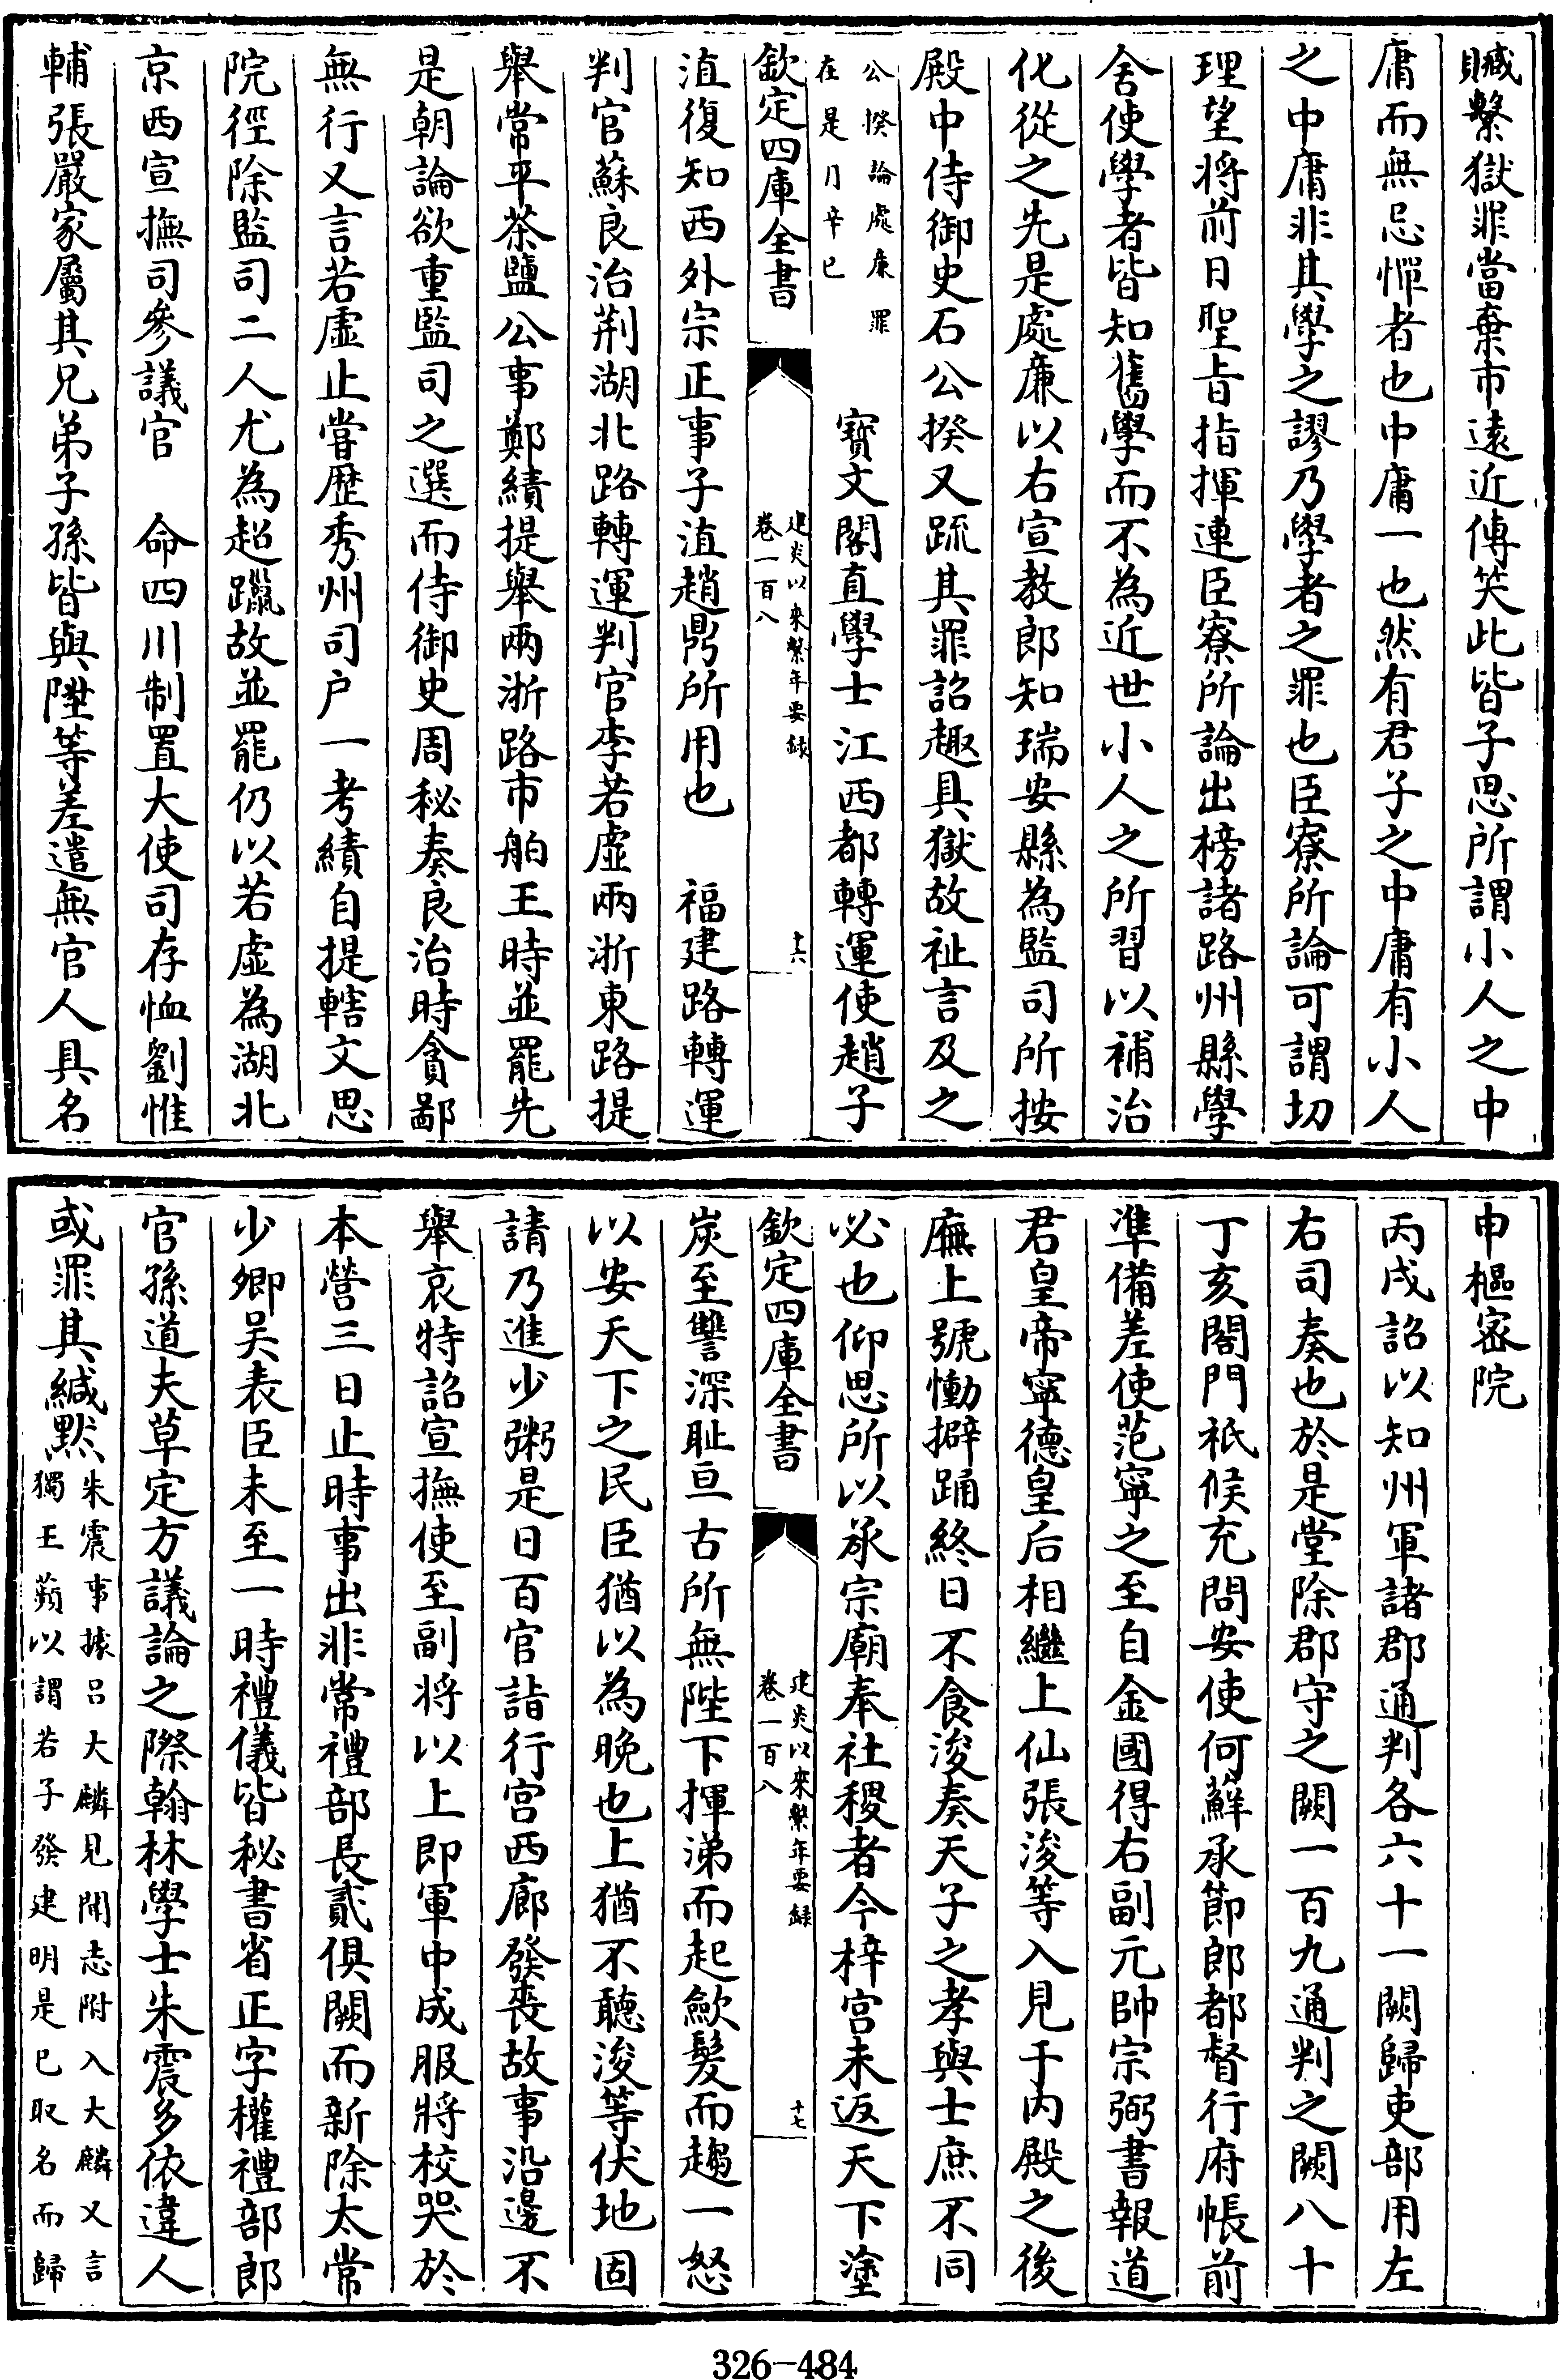 贓繫獄罪當棄市遠近傳笑此皆子思所謂小人之中
庸而無忌憚者也中庸一也然有君子之中庸有小人
之中庸非其學之謬乃學者之罪也臣寮所論可謂切
理望將前日聖旨指揮連臣寮所論出榜諸路州縣學
舍使學者皆知舊學而不為近世小人之所習以補治
化從之先是處廉以右宣教郎知瑞安縣為監司所按
殿中侍御史石公揆又疏其罪詔趣具獄故祉言及之
公揆論處廉罪
在是月辛巳
寶文閣直學士江西都轉運使趙子
欽定四庫全書
建炎以來繫年要録
卷一百八
十六
淔復知西外宗正事子淔趙鼎所用也　福建路轉運
判官蘇良治荆湖北路轉運判官李若虛兩浙東路提
舉常平茶鹽公事鄭績提舉兩浙路市舶王時並罷先
是朝論欲重監司之選而侍御史周秘奏良治時貪鄙
無行又言若虛止嘗歷秀州司户一考績自提轄文思
院徑除監司二人尤為超躐故並罷仍以若虛為湖北
京西宣撫司參議官　命四川制置大使司存恤劉惟
輔張嚴家屬其兄弟子孫皆與陞等差遣無官人具名
申樞密院
丙戌詔以知州軍諸郡通判各六十一闕歸吏部用左
右司奏也於是堂除郡守之闕一百九通判之闕八十
丁亥閤門祇候充問安使何蘚承節郎都督行府帳前
準備差使范寧之至自金國得右副元帥宗弼書報道
君皇帝寧德皇后相繼上仙張浚等入見于内殿之後
廡上號慟擗踊終日不食浚奏天子之孝與士庶不同
必也仰思所以承宗廟奉社稷者今梓宫未返天下塗
欽定四庫全書
建炎以來繫年要録
卷一百八
十七
炭至讐深耻亘古所無陛下揮涕而起歛髮而趨一怒
以安天下之民臣猶以為晚也上猶不聽浚等伏地固
請乃進少粥是日百官詣行宫西廊發喪故事沿邊不
舉哀特詔宣撫使至副將以上即軍中成服將校哭於
本營三日止時事出非常禮部長貳俱闕而新除太常
少卿吴表臣未至一時禮儀皆秘書省正字權禮部郎
官孫道夫草定方議論之際翰林學士朱震多依違人
或罪其緘默
朱震事據吕大麟見聞志附入大麟又言
獨王蘋以謂若子發建明是已取名而歸
326-484